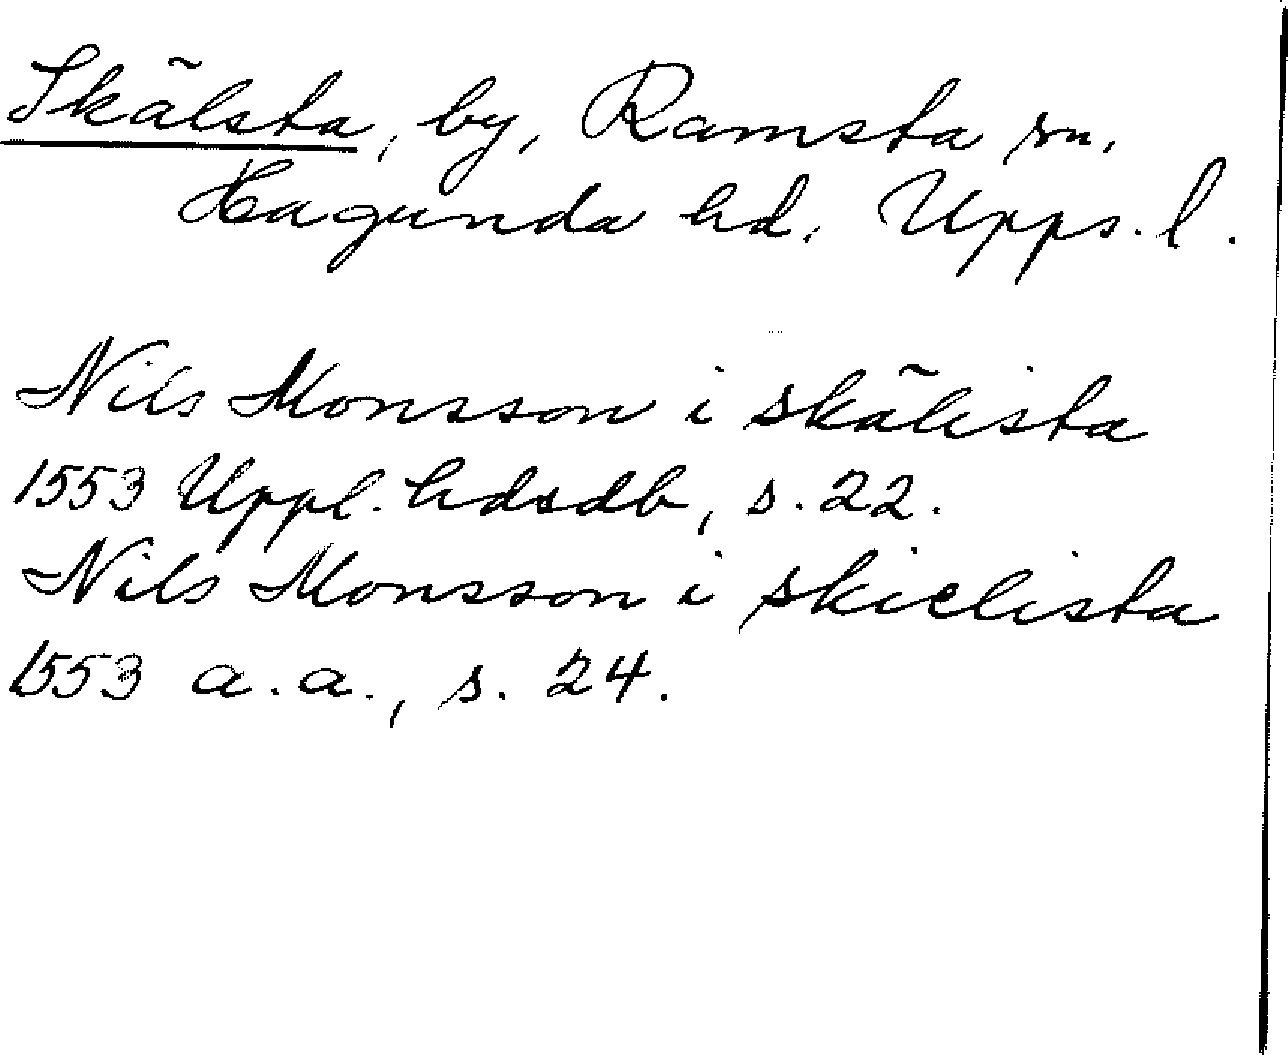 Skälsta, by, Ramsta sn.
Hagunda hd. Upps. l.
Nils Monsson i skälista
1553 Uppl. hdsdb, s. 22.
Nils Monsson i skielista
1553 a.a., s. 24.